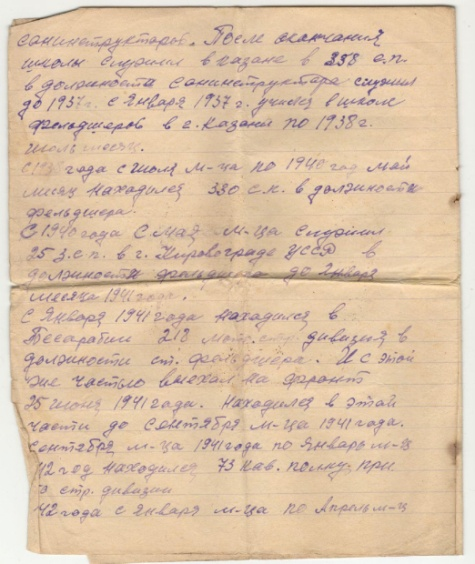 санинструкторов. После окончания
школы служил в Казане в 338 с.п.
в должности санинструктора служил
до 1937г. с Января 1937г. учился в школе
фельдшеров в г. Казани по 1938г.
июль месяц.
С 1938 года с Июля м-ца по 1940 год май
месяц находился 330 с.п. в должности
фельдшера.
С 1940 года с мая м-ца служил
в г. Кировограде УССР в
должности фельдшера до Января
месяца 1941 года.
С Января 1941 года находился в
Бесарабии 218 мото стр. дивизия в
должности ст. фельдшера. И с этой
же частью выехал на фронт
25 июня 1941 года. Находился в этой
части до Сентября м-ца 1941 года.
Сентября м-ца 1941 года по Январь м-ц
42 год находился 73 кав. полку при
стр. дивизии
42 года с Января м-ца по Апрель м-ц